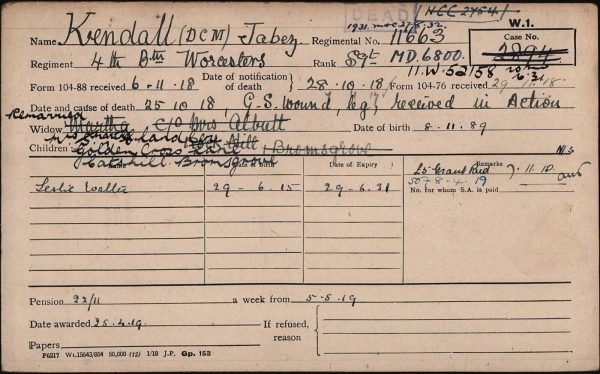 DEAD
1931. 27.5.32.
NCC 2754/
W.1.
Name Kendall (DCM) Jabez Regimental No. 11663
Case No.
Regiment 4th Btn Worcesters Rank Sgt MD.6800.
11.W.52158
Form 104-88 received 6-11-18 Date of notification of death } 28.10.18 Form 104-76 received 29.11.18
Date and cause of death 25 10 18, G.S. wound, leg, received in Action
Remarried
Widow Martha c/o Mrs Albutt Date of Birth 8.11.89
Children:
Golden Cross Hill Bromsgrove
Catshill Bromsgrove
Date of birth Date of Expiry Remarks
Leslie Walter 29-6-15 29-6-31
£5 Grant Paid 7.11.10
5078.4.19
No. for whom S.A. is paid
Pension 22/11 a week from 5-5-19
Date awarded 25.4.19. If refused, reason }
Papers
F6217 Wt.15643/854 50,000 (12) 1/18 J.P. Gp. 153